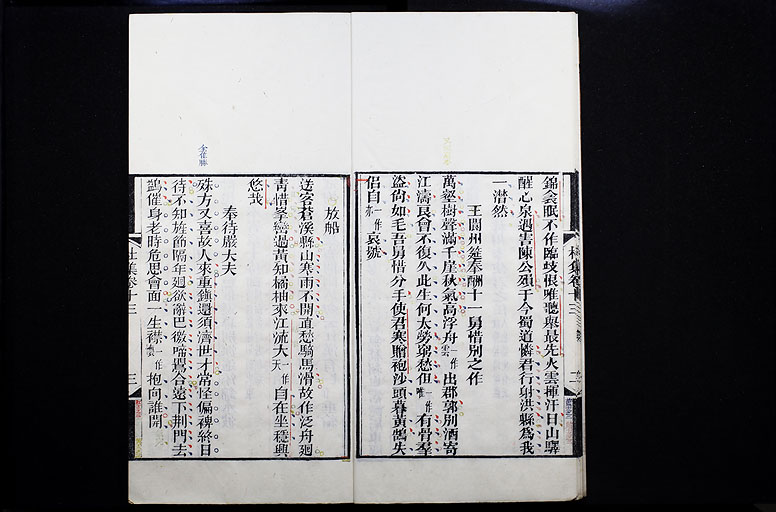 錦衾眠不作臨歧恨唯聽舉最先火雲揮汗日山驛
醒心泉遇害陳公殞于今蜀道憐君行射洪縣爲我
一潸然
王閬州筵奉酬十一舅惜別之作
萬壑樹聲滿千崖秋氣高浮舟一作雲出郡郭別酒寄
江濤良會不復久此生何太勞窮愁但一作唯有骨羣
盜尚如毛吾舅惜分手使君寒贈袍沙頭暮黃鵠失
侶自一作亦哀號
放船
送客蒼溪縣山寒雨不開直愁騎馬滑故作泛舟迴
青惜峯巒過黃知橘柚來江流大一作天自在坐穩興
悠哉
奉待嚴大夫
殊方又喜故人來重鎮還須濟世才常怪偏裨終日
待不知旌節隔年迴欲辭巴徼啼鶯合遠下荊門去
鷁催身老時危思會面一生襟一作抱向誰開
杜集卷十三
三